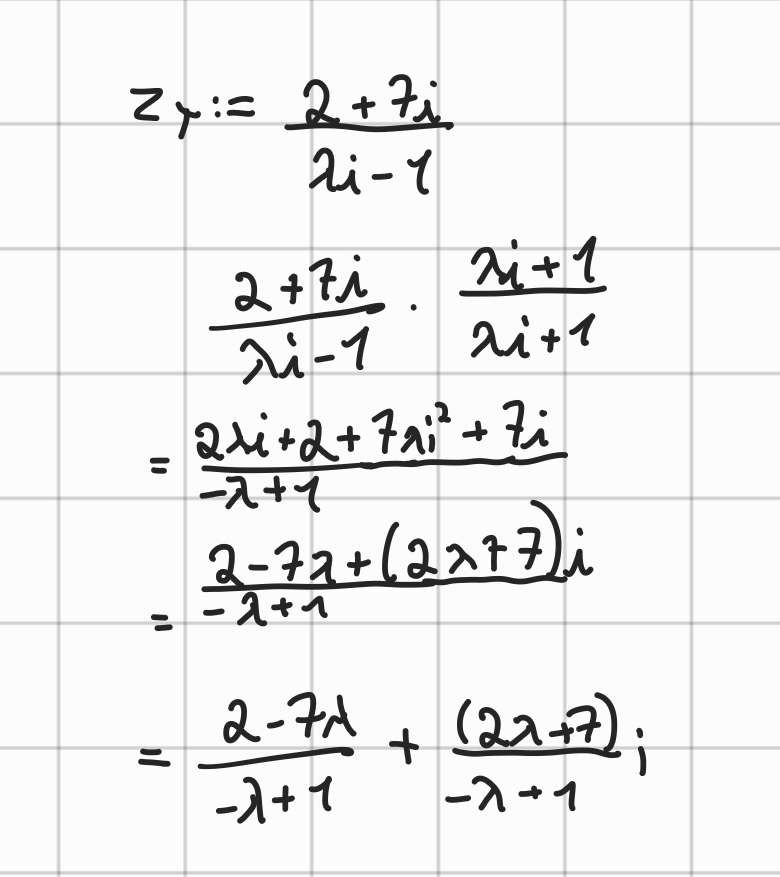 z_y := (2 + 7i)/(λi - 1)
(2 + 7i)/(λi - 1) · (λi + 1)/(λi + 1)
= (2λi + 2 + 7λi² + 7i)/(-λ + 1)
= (2 - 7λ + (2λ + 7)i)/(-λ + 1)
= (2 - 7λ)/(-λ + 1) + (2λ + 7)/(-λ + 1) i